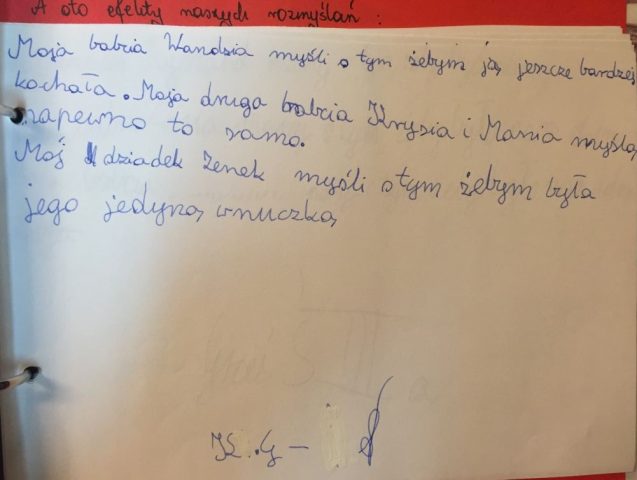 A oto efekty naszych rozmyślań :
Moja babcia Wandzia myśli o tym żebym ją jeszcze bardziej
kochała. Moja druga babcia Krysia i Mania myślą
napewno to samo.
Mój dziadek Zenek myśli o tym żebym była
jego jedyną wnuczką